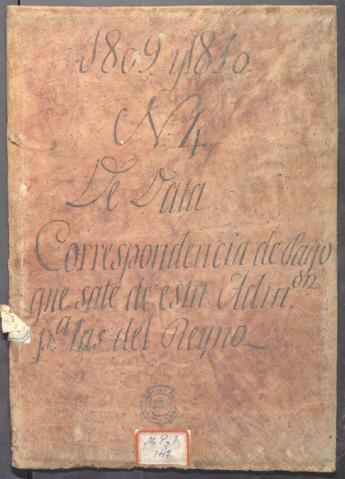 1809 y 1810
N. 4
De Data
Correspondencia de Pago
que sale de esta Adm.on
p.a las del Reyno